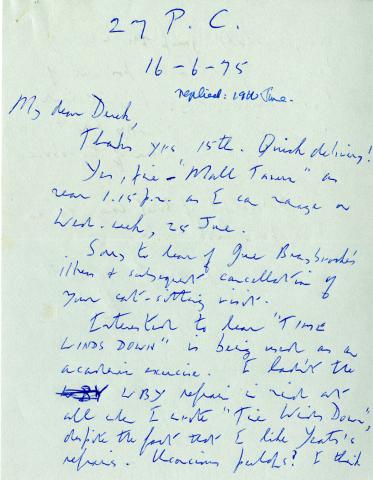 27 P. C.
16-6-75
replied: 19th June.
My dear Derek,
Thanks yrs 15th. Quick delivery!
Yes, fine - "Mall Tavern" as
near 1.15 p.m. as I can manage on
Wed. week, 25 June.
Sorry to hear of June Braybrooke's
illness & subsequent cancellation of
your cat-sitting visit.
Interested to hear "TIME
WINDS DOWN" is being used as an
academic exercise. I hadn't the
WBY refrain in mind at
all when I wrote "Time Winds Down",
despite the fact that I like Yeats's
refrains. Unconscious perhaps? I think